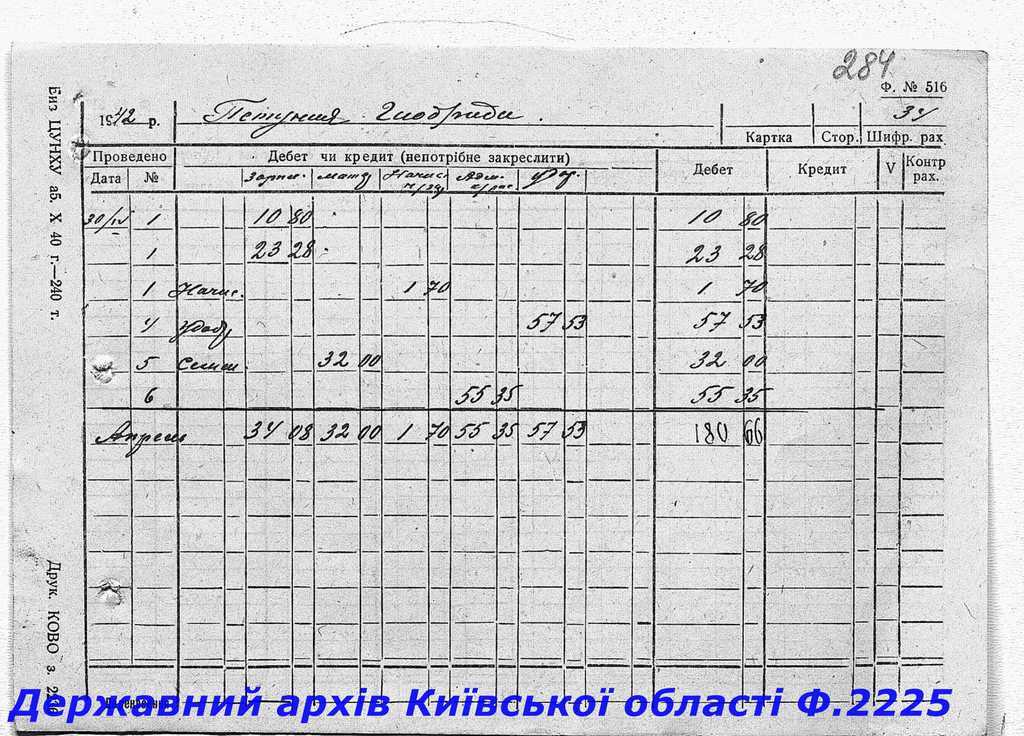 284
Ф. № 516
1942 р. Петуния Гибриди. 34
Картка Стор. Шифр. рах
Проведено Дебет чи кредит (непотрібне закреслити) Дебет Кредит V Контр рах.
Дата № Зарпл. мат Начис. Адм. Удоб.
30/IV 1 10 80 10 80
1 23 28 23 28
1 Начис. 1 70 1 70
4 Удобр 57 53 57 53
5 Семен. 32 00 32 00
6 55 35 55 35
Апрель 34 08 32 00 1 70 55 35 57 53 180 66
Биз ЦУНХУ аб. X 40 г.—240 т.
Друк. КОВО з.
Державний архів Київської області Ф.2225